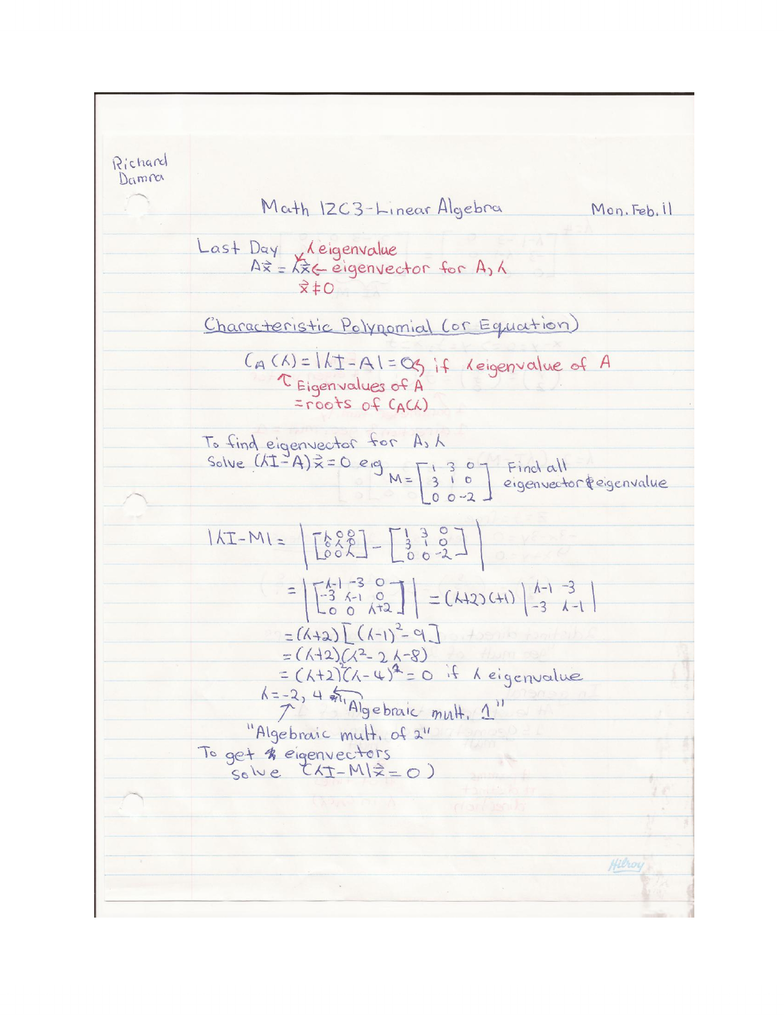 Richard
Damra
Math 1ZC3-Linear Algebra Mon. Feb. 11
Last Day λ eigenvalue
Ax⃗ = λx⃗ ← eigenvector for A, λ
x⃗ ≠ 0
Characteristic Polynomial (or Equation)
C_A(λ) = |λI-A| = 0 if λ eigenvalue of A
↑ Eigenvalues of A
= roots of C_A(λ)
To find eigenvector for A, λ
Solve (λI-A)x⃗ = 0 e.g M = [1 3 0; 3 1 0; 0 0 -2] Find all eigenvector & eigenvalue
|λI-M| = |[λ 0 0; 0 λ 0; 0 0 λ] - [1 3 0; 3 1 0; 0 0 -2]|
= |[λ-1 -3 0; -3 λ-1 0; 0 0 λ+2]| = (λ+2)(+1) |λ-1 -3; -3 λ-1|
= (λ+2)[(λ-1)² - 9]
= (λ+2)(λ² - 2λ - 8)
= (λ+2)²(λ-4) = 0 if λ eigenvalue
λ = -2, 4 "Algebraic mult. 1"
"Algebraic mult. of 2"
To get eigenvectors
solve (λI-M|x⃗ = 0)
Hilroy